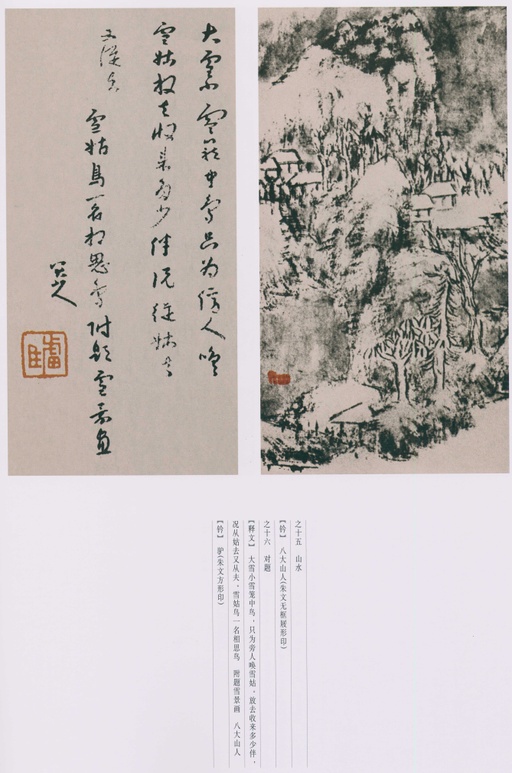 大雪小雪籠中鳥只为傍人唤
雪姑放去收来多少伴况従姑去
又従夫
雪姑鳥一名相思鳥附題雪景画
八大山人
驢
之十五　山水
【钤】　八大山人(朱文无框屐形印)
之十六　对题
【释文】　大雪小雪笼中鸟，只为旁人唤雪姑，放去收来多少伴，
况从姑去又从夫。雪姑鸟一名相思鸟　附题雪景画　八大山人
【钤】　驴(朱文方形印)